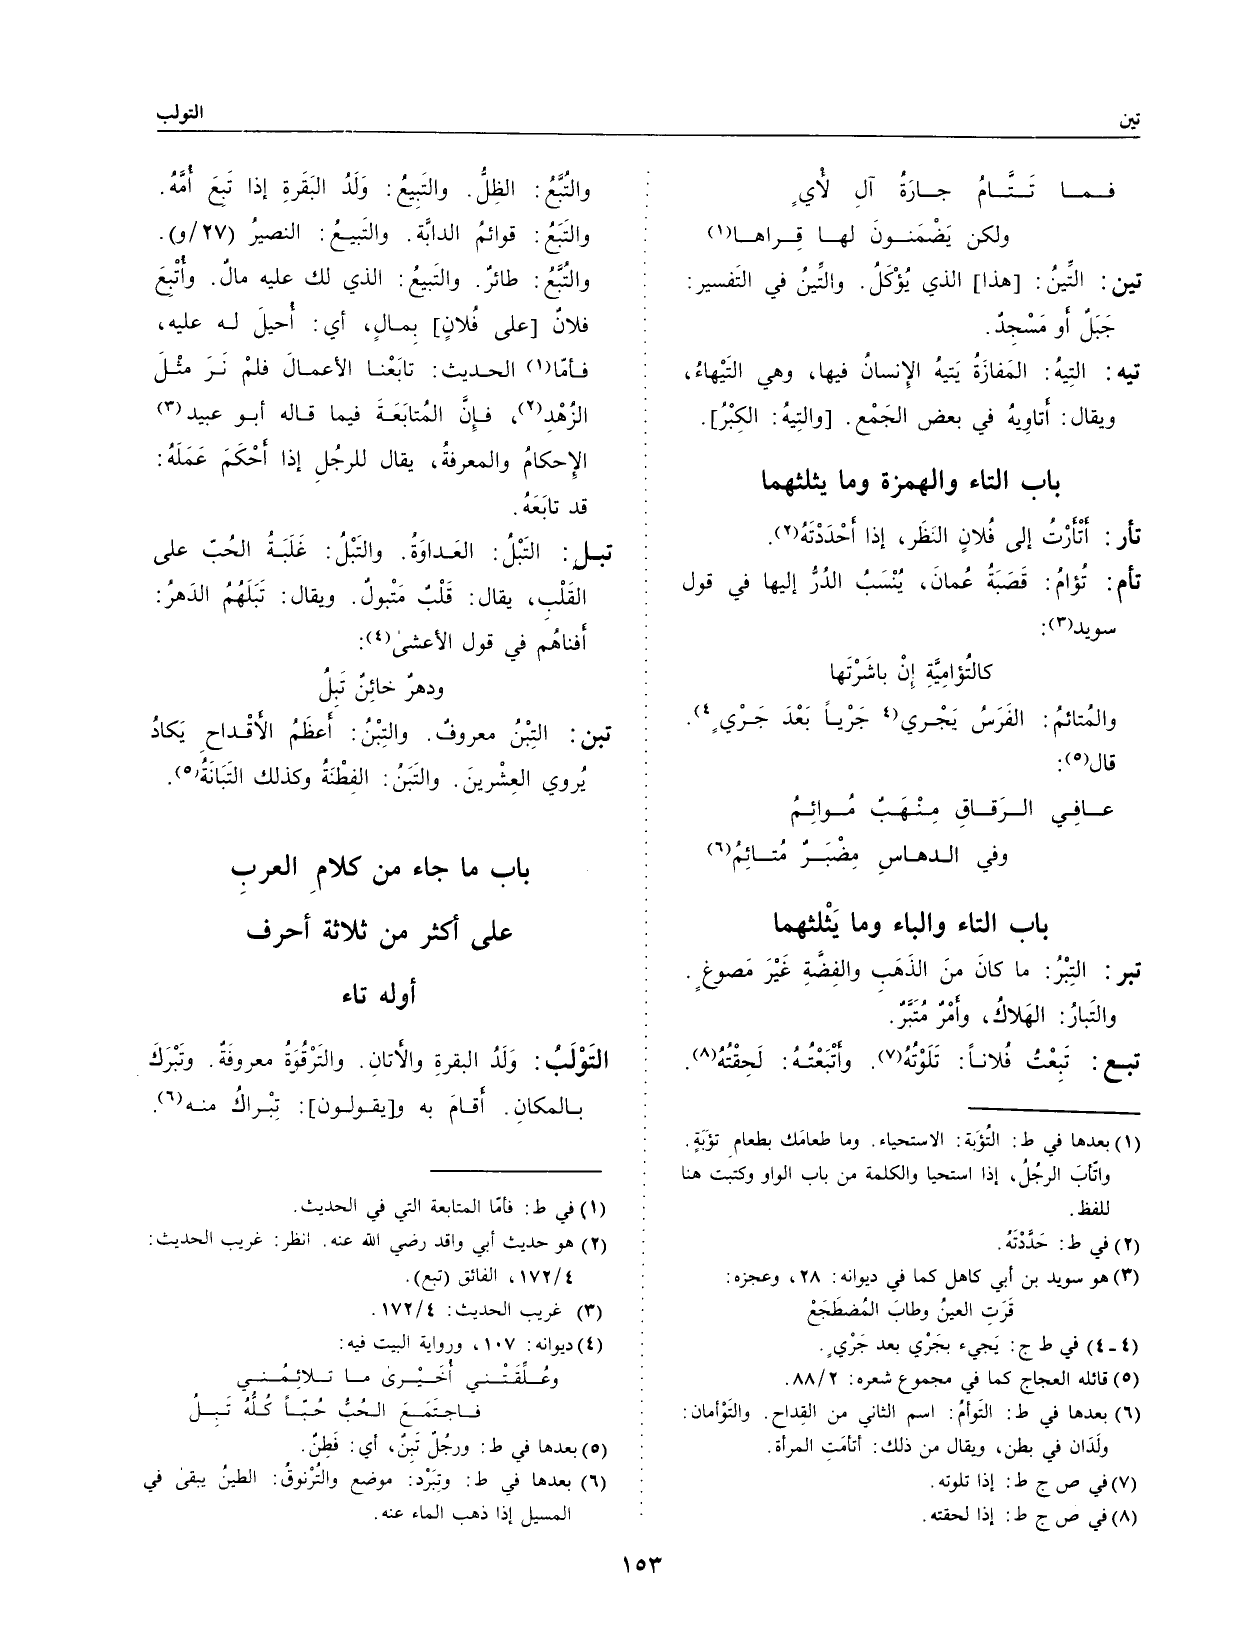 تين
التولب
فـمـا تَـتَّـامُ جـارَةُ آلِ لأْيٍ
ولكن يَضْمَنـونَ لهـا قِـراهـا(١)
تين: التِّينُ: [هذا] الذي يُؤْكَلُ. والتِّينُ في التَفسير:
جَبَلٌ أو مَسْجِدٌ.
تيه: التِيهُ: المَفازَةُ يَتيهُ الإنسانُ فيها، وهي التَيْهاءُ،
ويقال: أتاويهُ في بعض الجَمْع. [والتِيهُ: الكِبْرُ].
باب التاء والهمزة وما يثلثهما
تأر: أَتْأَرْتُ إلى فُلانٍ النَظَر، إذا أَحْدَدْتَهُ(٢).
تأم: تُؤامُ: قَصَبَةُ عُمانَ، يُنْسَبُ الدُرُّ إليها في قول
سويد(٣):
كالتُؤامِيَّةِ إنْ باشَرْتَها
والمُتائمُ: الفَرَسُ يَجْـري(٤ جَرْيـاً بَعْدَ جَـرْيٍ٤).
قال(٥):
عـافِـي الـرَقـاقِ مِنْـهَبٌ مُـوائِـمُ
وفي الـدهـاسِ مِضْبَـرٌ مُتـائِمُ(٦)
باب التاء والباء وما يَثْلثهما
تبر: التِبْرُ: ما كانَ منَ الذَهَبِ والفِضَّةِ غَيْرَ مَصوغٍ.
والتَبارُ: الهَلاكُ، وأَمْرٌ مُتَبَّرٌ.
تبـع: تَبِعْتُ فُلانـاً: تَلَوْتُهُ(٧). وأَتْبَعْتُـهُ: لَحِقْتُهُ(٨).
(١) بعدها في ط: التُؤَبَة: الاستحياء. وما طعامَك بطعامِ تؤبَةٍ.
واتّأبَ الرجُلُ، إذا استحيا والكلمة من باب الواو وكتبت هنا
للفظ.
(٢) في ط: حَدَّدْتَهُ.
(٣) هو سويد بن أبي كاهل كما في ديوانه: ٢٨، وعجزه:
قَرَتِ العينُ وطابَ المُضطَجَعْ
(٤ـ٤) في ط ج: يَجيء بجَرْي بعد جَرْيٍ.
(٥) قائله العجاج كما في مجموع شعره: ٨٨/٢.
(٦) بعدها في ط: التَوأمُ: اسم الثاني من القِداح. والتَوْأمان:
ولَدَان في بطن، ويقال من ذلك: أتأمَتِ المرأة.
(٧) في ص ج ط: إذا تلوته.
(٨) في ص ج ط: إذا لحقته.
والتُبَّعُ: الظِلُّ. والتَبِيعُ: وَلَدُ البَقَرةِ إذا تَبِعَ أُمَّهُ.
والتَبَعُ: قوائمُ الدابَّة. والتَبيـعُ: النصيرُ (٢٧/و).
والتُبَّعُ: طائرٌ. والتَبيعُ: الذي لك عليه مالٌ. وأُتْبِعَ
فلانٌ [على فُلانٍ] بِمـالٍ، أي: أُحيلَ لـه عليه،
فـأمّا(١) الحـديث: تابَعْنـا الأعمـالَ فلمْ نَـرَ مثْـلَ
الزُهْدِ(٢)، فـإنَّ المُتابَعَـةَ فيما قـاله أبـو عبيد(٣)
الإحكامُ والمعرفةُ، يقال للرجُلِ إذا أَحْكَمَ عَمَلَهُ:
قد تابَعَهُ.
تبـل: التَبْلُ: العَـداوَةُ. والتَبْلُ: غَلَبَـةُ الحُبّ على
القَلْبِ، يقال: قَلْبٌ مَتْبولٌ. ويقال: تَبَلَهُمُ الدَهرُ:
أفناهُم في قول الأعشىٰ(٤):
ودهرٌ خائِنٌ تَبِلُ
تبن: التِبْنُ معروفٌ. والتِبْنُ: أعظَمُ الأَقْـداحِ يَكادُ
يُروي العِشْرينَ. والتَبَنُ: الفِطْنَةُ وكذلك التَبانَةُ(٥).
باب ما جاء من كلامِ العربِ
على أكثر من ثلاثة أحرف
أوله تاء
التَوْلَبُ: وَلَدُ البقرةِ والأتانِ. والتَرْقُوَةُ معروفةٌ. وتَبْرَكَ
بـالمكانِ. أقـامَ به و[يقولـون]: تِبْـراكُ منـه(٦).
(١) في ط: فأمّا المتابعة التي في الحديث.
(٢) هو حديث أبي واقد رضي الله عنه. انظر: غريب الحديث:
١٧٢/٤، الفائق (تبع).
(٣) غريب الحديث: ١٧٢/٤.
(٤) ديوانه: ١٠٧، ورواية البيت فيه:
وعُـلِّقَتْـنـي أُخَـيْـرىٰ مـا تـلائِـمُـنـي
فـاجـتـمَـعَ الـحُبُّ حُبّـاً كُـلُّهُ تَـبِـلُ
(٥) بعدها في ط: ورجُلٌ تَبِنٌ، أي: فَطِنٌ.
(٦) بعدها في ط: وتِبَرْد: موضع والتُرْنوقُ: الطينُ يبقىٰ في
المسيل إذا ذهب الماء عنه.
١٥٣